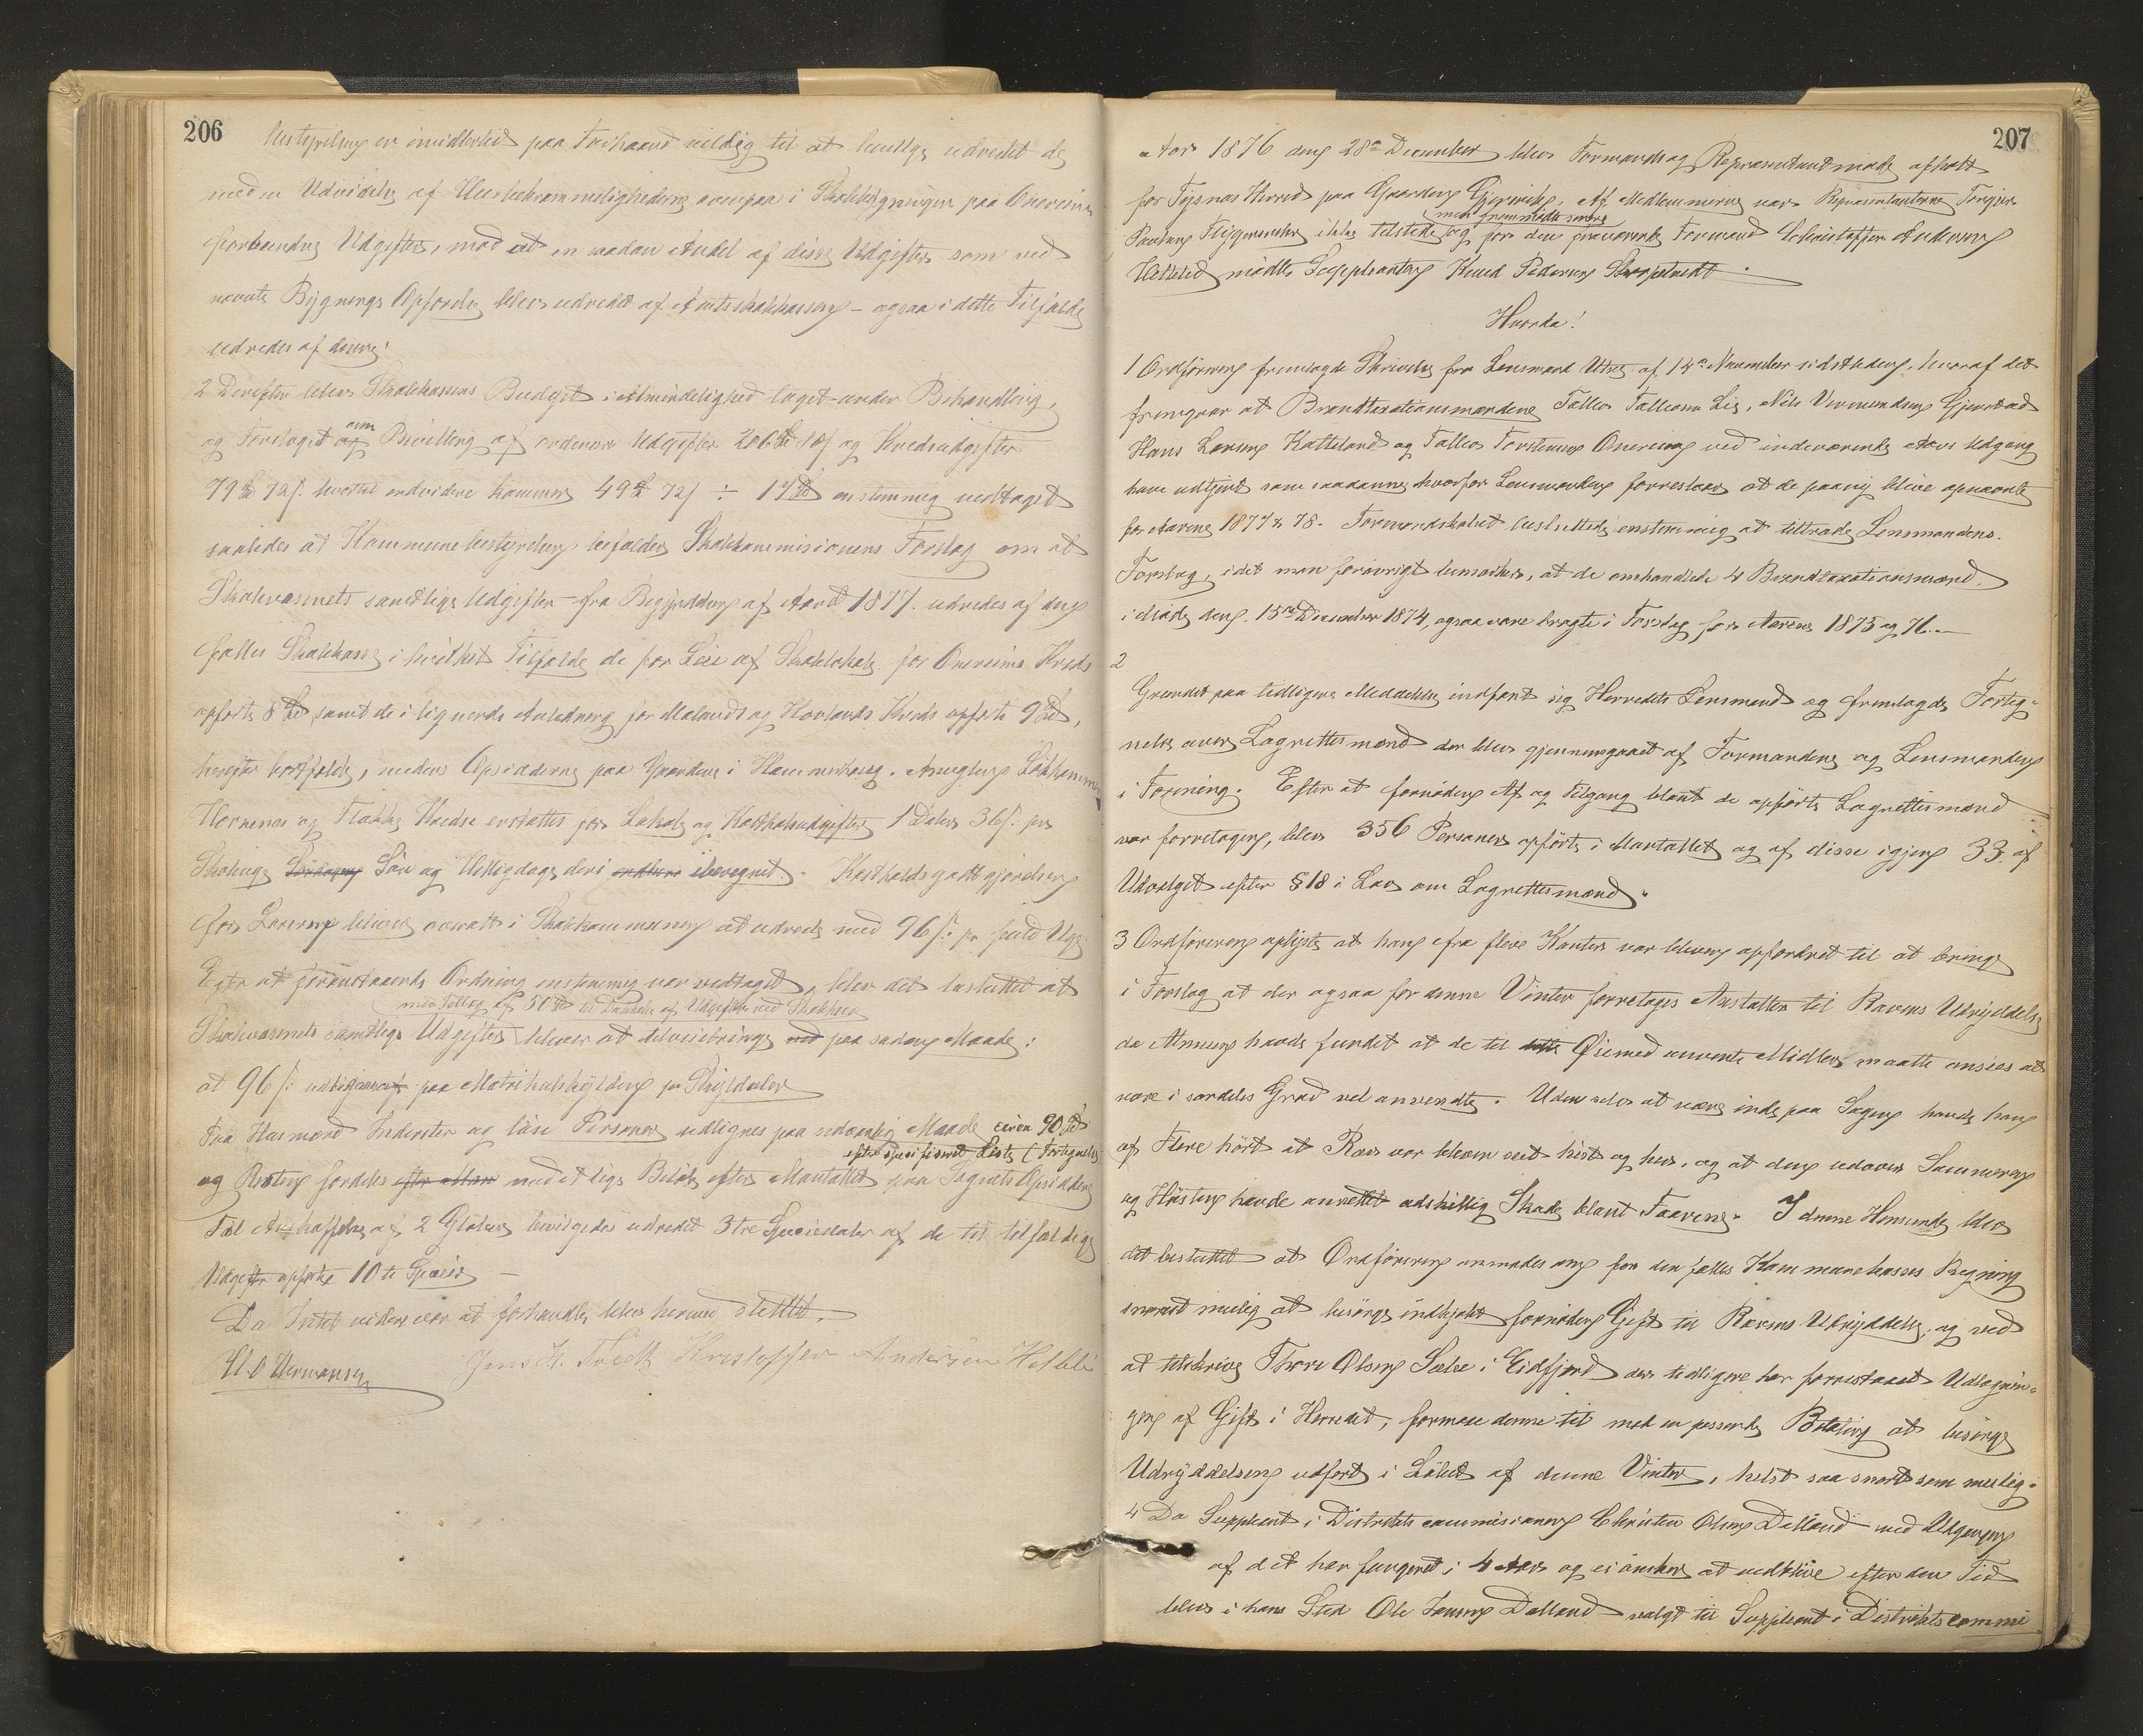 206
bestyrelsen er imidlertid paa Forhaand villig til at bevilge udredet de
med en Udvidelse af Beqvemmelighederne ovenpaa i Skolebygningen paa Onereim
forbundne Udgifter, mod at en saadan Andel af disse Udgifter som ved
nævnte Bygnings Opførelse blev udredet af Amtsskolekassen – ogsaa i dette Tilfælde
udredes af denne.
2 Derefter blev Skolekassens Budget i Almindelighed taget under Behandling,
og Forslaget om Bevilling af ordinære Udgifter 206 Spd 18 s og Kredsudgifter
79 Spd 72 s. hvortil endvidere kommer 49 Spd 72 s ÷ 17 Spd enstemmig vedtaget
saaledes at Kommunebestyrelsen bifalder Skolekommissionens Forslag om at
Skolevæsenets samtlige Udgifter fra Begyndelsen af Aaret 1877 udredes af den
fælles Skolekasse i hvilket Tilfælde de for Leie af Skolelokale for Onereims Kreds
opførte 8 Spd, samt de i lignende Anledning for Malands og Hovlands Kreds opførte 9 Spd,
bortfalde, medens Opsidderne paa Gaardene i
og Flakke Kredse erstattes for Lokale og Kostholdsudgifter 1 Daler 36 s. pr
Skoleuge Søn og Helligdage deri iberegnet. Kostholdsgodtgjørelsen
for Læreren blive ansatt i Skolekommunen at udrede med 96 s. pr fuld Uge
Efter at foranstaaende Ordning enstemmig var vedtaget, blev det besluttet at
med Tillæg af 50 Spd til Udgifter ved
Skolevæsenets samtlige Udgifter blever at tilveiebringe ved paa sadan Maade:
at 96 s. paa Matrikulskylden pr Skylddaler
Paa Husmænd Inderster og løse Personer udlignes paa sedvanlig Maade circa 90 Spd
efter specificeret Liste (Fortegnelse)
og Resten fordeles med et lige Beløb efter Mantallet paa Sognets Opsiddere
Til Anskaffelse af 2 Glober bevilgedes udredet 3 tre Speciedaler af de til tilfældige
Udgifter opførte 10 ti Specier –
Da Intet videre var at forhandle blev hermed sluttet.
Jens H. Kristoffer Andersen Hetleli
207
Aar 1876 den 28de December blev Formands og Repræsentantmøde afholdt
for Tysnæs Herred paa Gaarden Gjerevik. Af Medlemmerne var Repræsentanterne Torger
men fremmødte senere
ikke tilstede og for den fraværende Formand Christoffer Andersen
Hetleli mødte Suppleanten Knud Pedersen
Hvorda!
1 Ordføreren fremlagde Skrivelse fra Lensmand af 14de November sidstleden, hvoraf det
fremgaar at Brandtaxationsmændene Tallev Tallevsen Lie, Nils Vermundsen Gjerstad
Hans Larsen Katteland og Tallev Torstensen Onereim ved indeværende Aars Udgang
have udtjent som saadanne hvorfor Lensmanden forreslaar at de paany blive opnævnte
for Aarene 1877 & 78. Formandskabet besluttede enstemmig at tiltræde Lensmandens
Forslag, idet man forøvrigt bemærker, at de omhandlede 4 Brandtaxationsmænd
i Møde den 13de December 1874, ogsaa vare bragte i Forslag for Aarene 1875 og 76.—
2
Grundet paa tidligere Meddelelse indfant sig Herredets Lensmand og fremlagde Forteg-
nelse over Lagrettesmænd der blev gjennemgaaet af Formanden og Lensmanden
i Forening. Efter at fornøden Af og Tilgang blant de opførte Lagrettesmænd
var forretagen, blev 356 Personer opførte i Mantallet og af disse igjen 33 af
Udvalget efter § 18 i Lov om Lagrettesmænd.
3 Ordføreren oplyste at han fra flere Kanter var bleven opfordret til at bringe
i Forslag at der ogsaa for denne Vinter forretages Anstalter til Rævens Udryddelse
da Almuen havde fundet at de til dette Øiemed anvente Midler maatte ansees at
være i særdeles Grad vel anvendte. Uden selv at være inde paa Sagen havde han
af Flere hørt at Ræv var bleven seet hist og her, og at den udover Sommeren
og Høsten havde anrettet adskillig Skade blant Faarene. I denne Henseende blev
det besluttet at Ordføreren anmodes om for den fælles Kommunekasses Regning
snarest mulig at besørge indkjøbt fornøden Gift til Rævens Udryddelse, og ved
at tilskrive Thore Olsen Sæle i Eidfjord der tidligere har forrestaaet Udlægnin-
gen af Gift i Herredet, formaae denne til mod en passende Betaling at besørge
Udryddelsen udført i Løbet af denne Vinter, helst saa snart som mulig.
4 Da Suppleant i Districtscommisionen Christen Olsen Dalland med Udgangen
af det har fungeret i 4 Aar og ei ønsker at vedblive efter den Tid
blev i hans Sted Ole Dalland valgt til Suppleant i Districtscommi